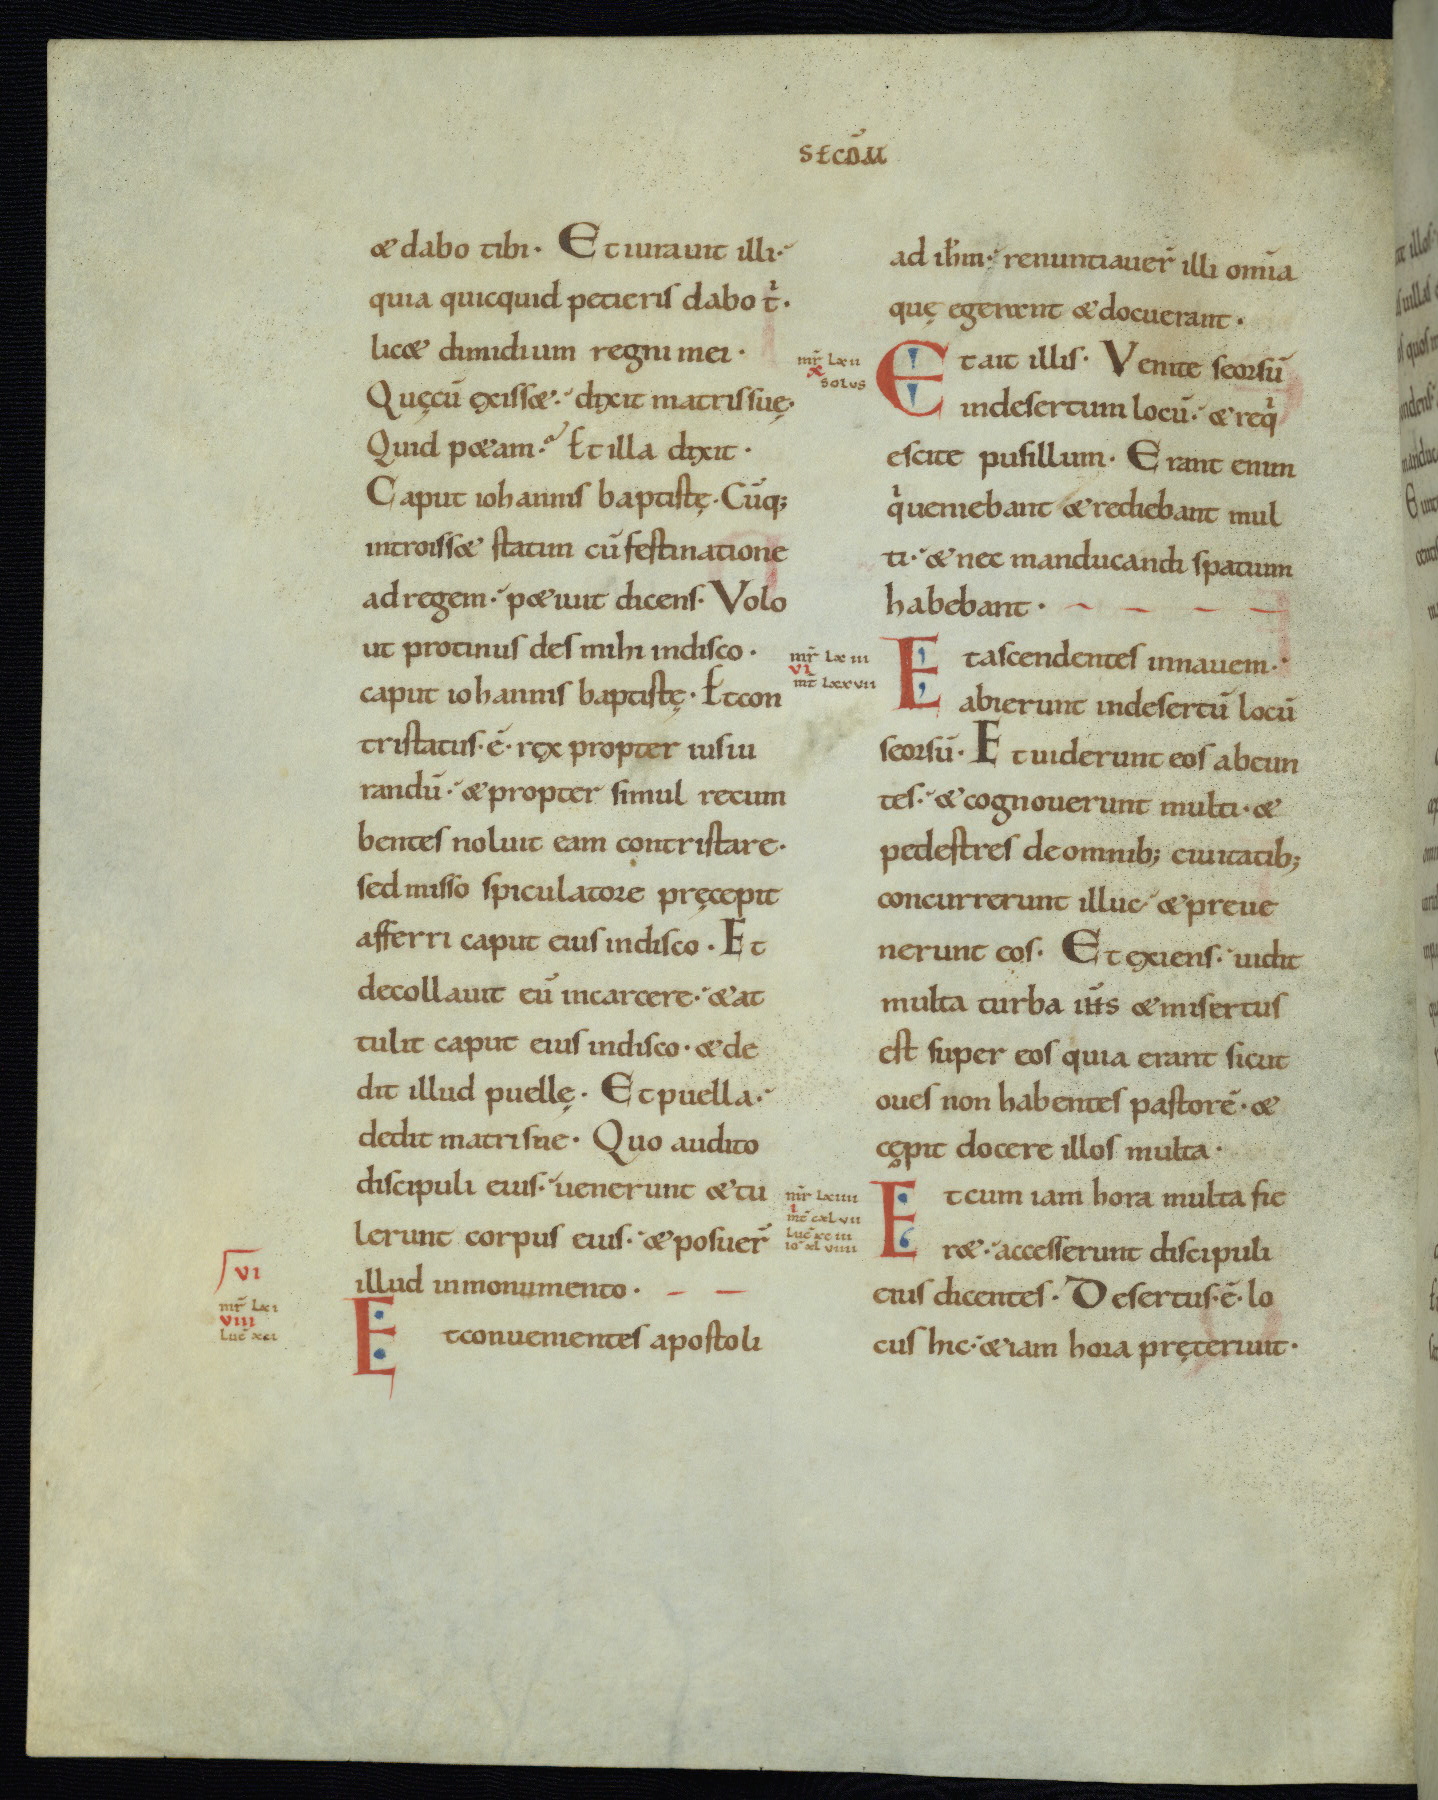 SECD̄M
& dabo tibi· Et iurauit illi·
quia quicquid petieris dabo t̍·
lic& dimidium regni mei·
Quęcū ęxiss&· dixit matri suę·
Quid p&am· Et illa dixit·
Caput iohannis baptistę· Cūq;
introiss& statim cū festinatione
ad regem· p&iuit dicens· Volo
ut protinus des mihi indisco·
caput iohannis baptistę· Et con
tristatus·ē· rex propter iusiu
randū· & propter simul recum
bentes noluit eam contristare·
sed misso spiculatore pręcepit
afferri caput eius indisco· Et
decollauit eū incarcere· & at
tulit caput eius indisco· & de
dit illud puellę· Et puella·
dedit matri suę· Quo audito
discipuli eius· uenerunt & tu
lerunt corpus eius· & posuer̄
illud inmonumento·
VI
mr̄ Lxi
VIII
Luc̄ xci
Et conuenientes apostoli
ad ih̄m· renuntiauer̄ illi omīa
quę egerunt & docuerant·
mr̄ Lxii
x
SOLUS
Et ait illis· Venite seorsū
indesertum locū· & req̍
escite pusillum· Erant enim
q̍ ueniebant & rediebant mul
ti· & nec manducandi spatium
habebant·
mr̄ Lxiii
VI
mt̄ Lxxvii
Et ascendentes innauem·
abierunt indesertū locū
seorsū· Et uiderunt eos abeun
tes· & cognouerunt multi· &
pedestres deomnib; ciuitatib;
concurrerunt illuc & preue
nerunt eos· Et ęxiens· uidit
multa turba ih̄s & misertus
est super eos quia erant sicut
oues non habentes pastorē· &
cępit docere illos multa·
mr̄ Lxiiii
I
mt̄ cxLvii
Luc̄ xciii
io̅ xLviiii
Et cum iam hora multa fie
r&· accesserunt discipuli
eius dicentes· Desertus·ē· lo
cus hic· & iam hora pręteriuit·